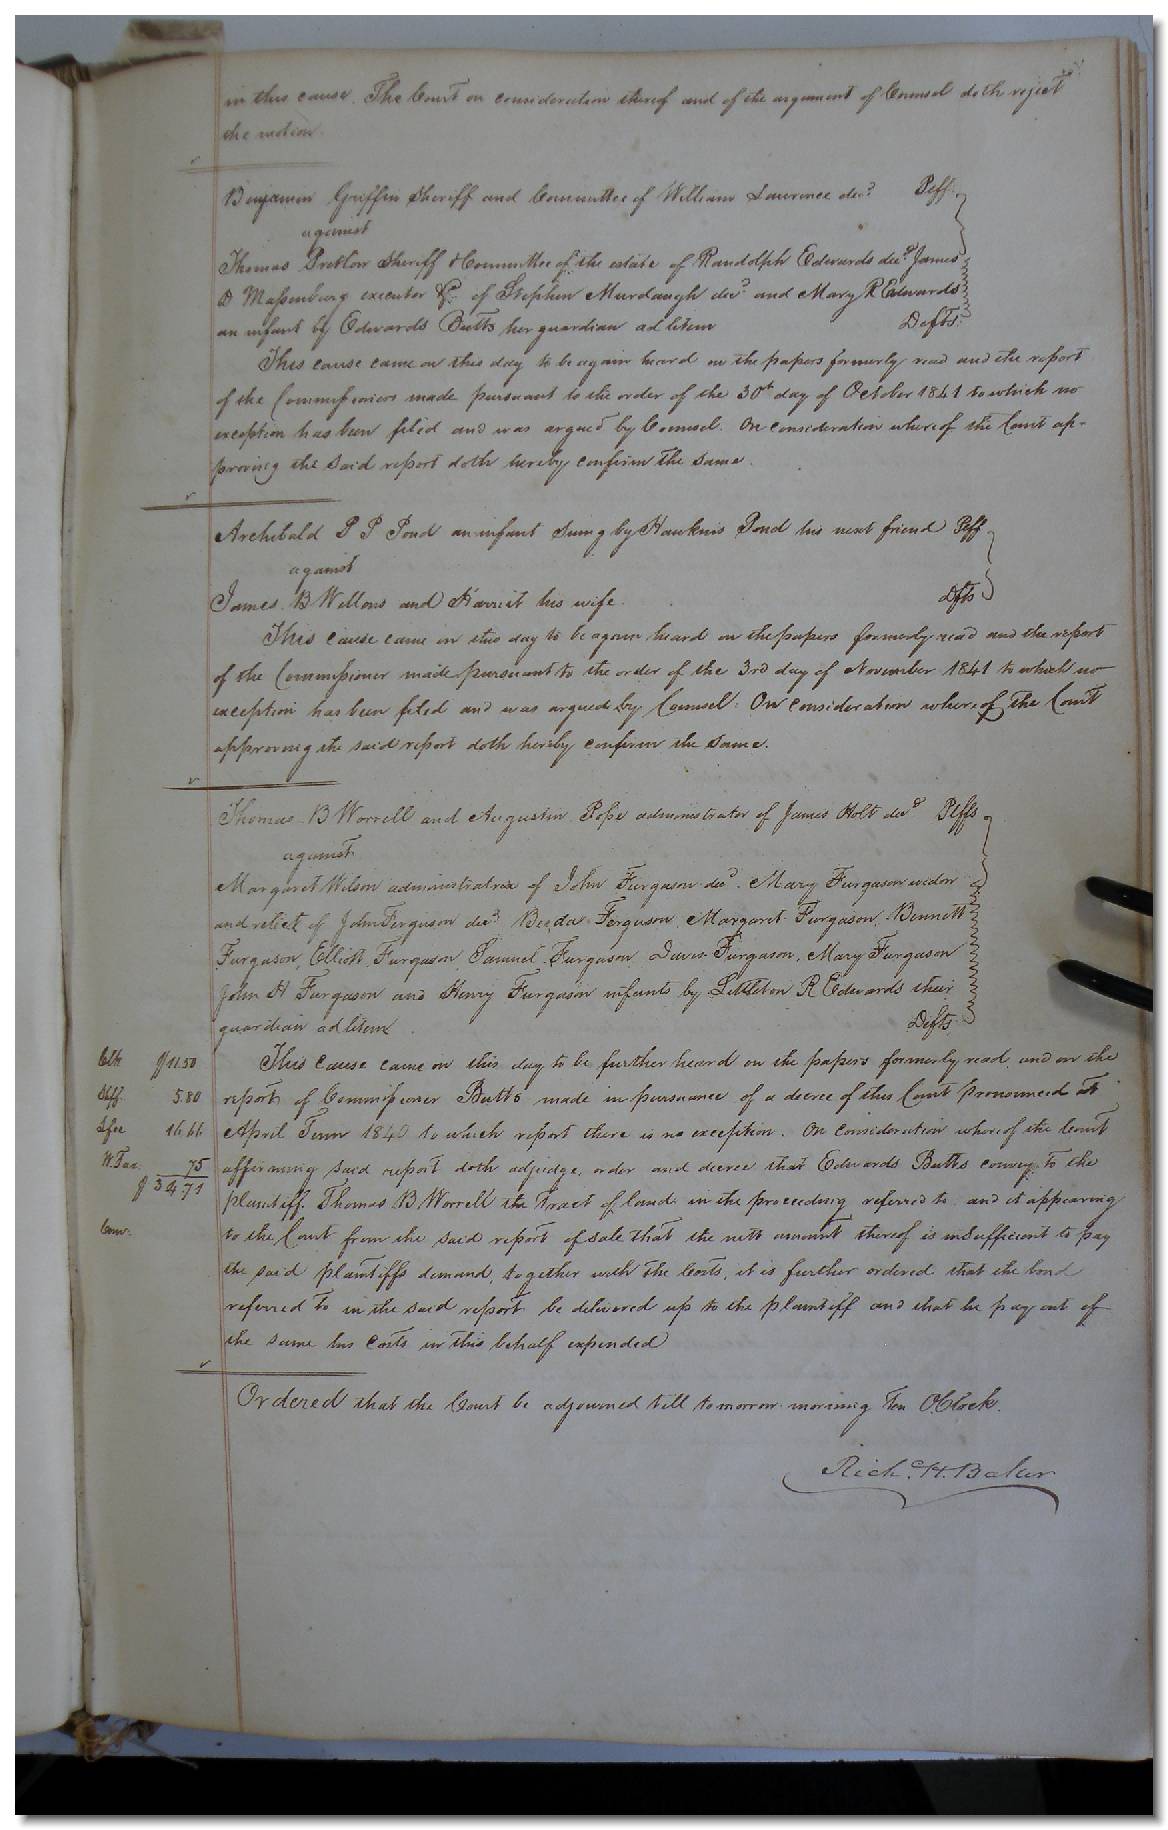 in this cause. The Court on consideration thereof and of the argument of Counsel doth reject
the motion.
Benjamin Griffin Sheriff and Committee of William Lawrence decd. Plff.
against
Thomas Pretlow Sheriff & Committee of the estate of Randolph Edwards decd. James
D Massenburg executor &c. of Stephen Murdaugh decd. and Mary R Edwards
an infant by Edwards Butts her guardian ad litem Defts.
This cause came on this day to be again heard on the papers formerly read and the report
of the Commissioners made pursuant to the order of the 30th day of October 1841 to which no
exception has been filed and was argued by Counsel. On consideration whereof the Court ap-
proving the said report doth hereby confirm the same.
Archibald P P Pond an infant suing by Hawkins Pond his next friend Plff
against
James B Wellons and Harriet his wife. Defts
This cause came on this day to be again heard on the papers formerly read and the report
of the Commissioner made pursuant to the order of the 3rd day of November 1841 to which no
exception has been filed and was argued by Counsel. On consideration whereof the Court
approving the said report doth hereby confirm the same.
Thomas B Worrell and Augustin Pope administrator of James Holt decd Plffs
against
Margaret Wilson administratrix of John Furgason decd. Mary Furgason widow
and relict of John Ferguson decd. Furgason, Margaret Furgason, Bennett
Furgason, Elliott Furgason, Samuel Furgason, Davis Furgason, Mary Furgason
John H Furgason and Henry Furgason infants by Littleton R Edwards their
guardian ad litem. Defts.
Clk $11.50 This cause came on this day to be further heard on the papers formerly read, and on the
Shff. 5.80 report of Commissioner Butts made in pursuance of a decree of this Court pronounced at
16.66 April Term 1840 to which report there is no exception. On consideration whereof the Court
W. Tax. 75 affirming said report doth adjudge, order and decree that Edwards Butts convey to the
$34.71 plaintiff Thomas B Worrell the tract of land in the proceeding referred to. and it appearing
to the Court from the said report of sale that the nett amount thereof is insufficient to pay
the said plaintiffs demand, together with the Costs, it is further ordered that the bond
referred to in the said report be delivered up to the plaintiff and that he pay out of
the same his costs in this behalf expended
Ordered that the Court be adjourned till tomorrow morning Ten OClock.
Richd. H. Baker